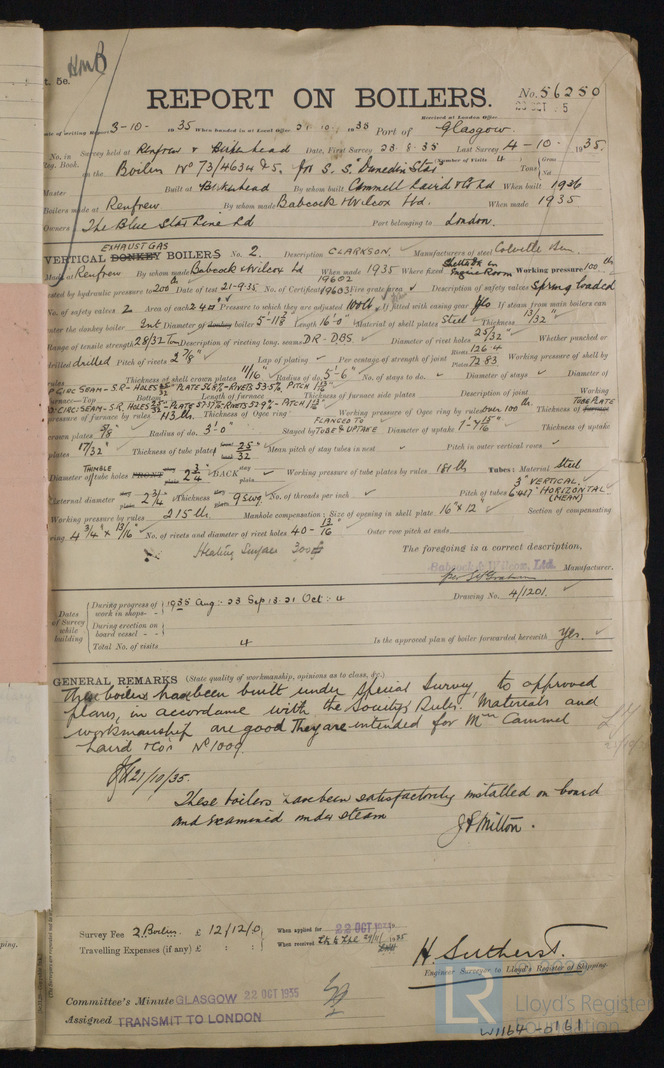 HMB
t. 5e.
REPORT ON BOILERS.
No. 56250
Received at London Office
Date of writing Report 3-10-1935 When handed in at Local Office 21.10.1935 Port of Glasgow.
No. in Survey held at Renfrew & Birkenhead Date, First Survey 23.8.35 Last Survey 4-10-1935.
Reg. Book. on the Boilers No 73/4634 & 5. for S.S. "Dunedin Star" (Number of Visits 4) Gross Tons Net
Master Built at Birkenhead By whom built Cammell Laird & Co Ltd When built 1936
Boilers made at Renfrew By whom made Babcock & Wilcox Ltd. When made 1935
Owners The Blue Star Line Ltd Port belonging to London.
EXHAUST GAS
VERTICAL DONKEY BOILERS No. 2. Description CLARKSON. Manufacturers of steel Colville
Made at Renfrew By whom made Babcock & Wilcox Ld When made 1935 Where fixed Engine Room Working pressure 100 lb
tested by hydraulic pressure to 200 lb Date of test 21-9-35 No. of Certificate 19602 19603 Fire grate area Description of safety valves Spring loaded
No. of safety valves 2 Area of each Pressure to which they are adjusted 100 lb If fitted with easing gear Yes If steam from main boilers can
enter the donkey boiler Diameter of donkey boiler Length 16'-0" Material of shell plates Steel Thickness 13/32"
Range of tensile strength 28/32 Tons Description of riveting long. seams DR-DBS Diameter of rivet holes 25/32" Whether punched or
drilled drilled Pitch of rivets 2 7/8" Lap of plating Per centage of strength of joint Rivets 126.4 Plates 72.83 Working pressure of shell by
rules Thickness of shell crown plates 11/16" Radius of do. 5'-6" No. of stays to do. Diameter of stays Diameter of
Furnace—Top Bottom Length of furnace Thickness of furnace side plates Description of joint Working
pressure of furnace by rules 113 lb. Thickness of Ogee ring Working pressure of Ogee ring by rules over 100 lb Thickness of TUBE PLATE
crown plates 5/8" Radius of do. 3'-0" Stayed by FLANGED TO TUBE & UPTAKE Diameter of uptake Thickness of uptake
plates 17/32" Thickness of tube plates 25/32 Mean pitch of stay tubes in nest Pitch in outer vertical rows
THIMBLE
Diameter of tube holes FRONT 2 3/4" BACK Working pressure of tube plates by rules 181 lb Tubes: Material Steel
External diameter 2 3/4" Thickness 9 swg. No. of threads per inch Pitch of tubes 3" VERTICAL HORIZONTAL (MEAN)
Working pressure by rules 215 lb Manhole compensation: Size of opening in shell plate 16" x 12" Section of compensating
ring 4 3/4" x 13/16" No. of rivets and diameter of rivet holes 40-13/16" Outer row pitch at ends
Heating Surface
The foregoing is a correct description,
Babcock & Wilcox, Ltd. Manufacturer.
Dates of Survey while building
During progress of work in shops 1935 Aug: 23 Sep 13. 21 Oct: 4
Drawing No. 4/1201.
During erection on board vessel
Total No. of visits 4 Is the approved plan of boiler forwarded herewith Yes.
GENERAL REMARKS (State quality of workmanship, opinions as to class, &c.)
These boilers have been built under Special Survey, to approved
plans, in accordance with the Society's Rules. Materials and
workmanship are good. They are intended for Messrs Cammell
Laird & Co's No 1009.
21/10/35.
These boilers have been satisfactorily installed on board
and examined under steam
J S Milton.
Survey Fee 2 Boilers. £ 12/12/0 When applied for 22 OCT 1935
Travelling Expenses (if any) £ : : When received
H. Sutherst.
Engineer Surveyor to Lloyd's Register of Shipping.
Committee's Minute GLASGOW 22 OCT 1935
Assigned TRANSMIT TO LONDON
LR
© 2020
Lloyd's Register
Foundation
W1164-0161